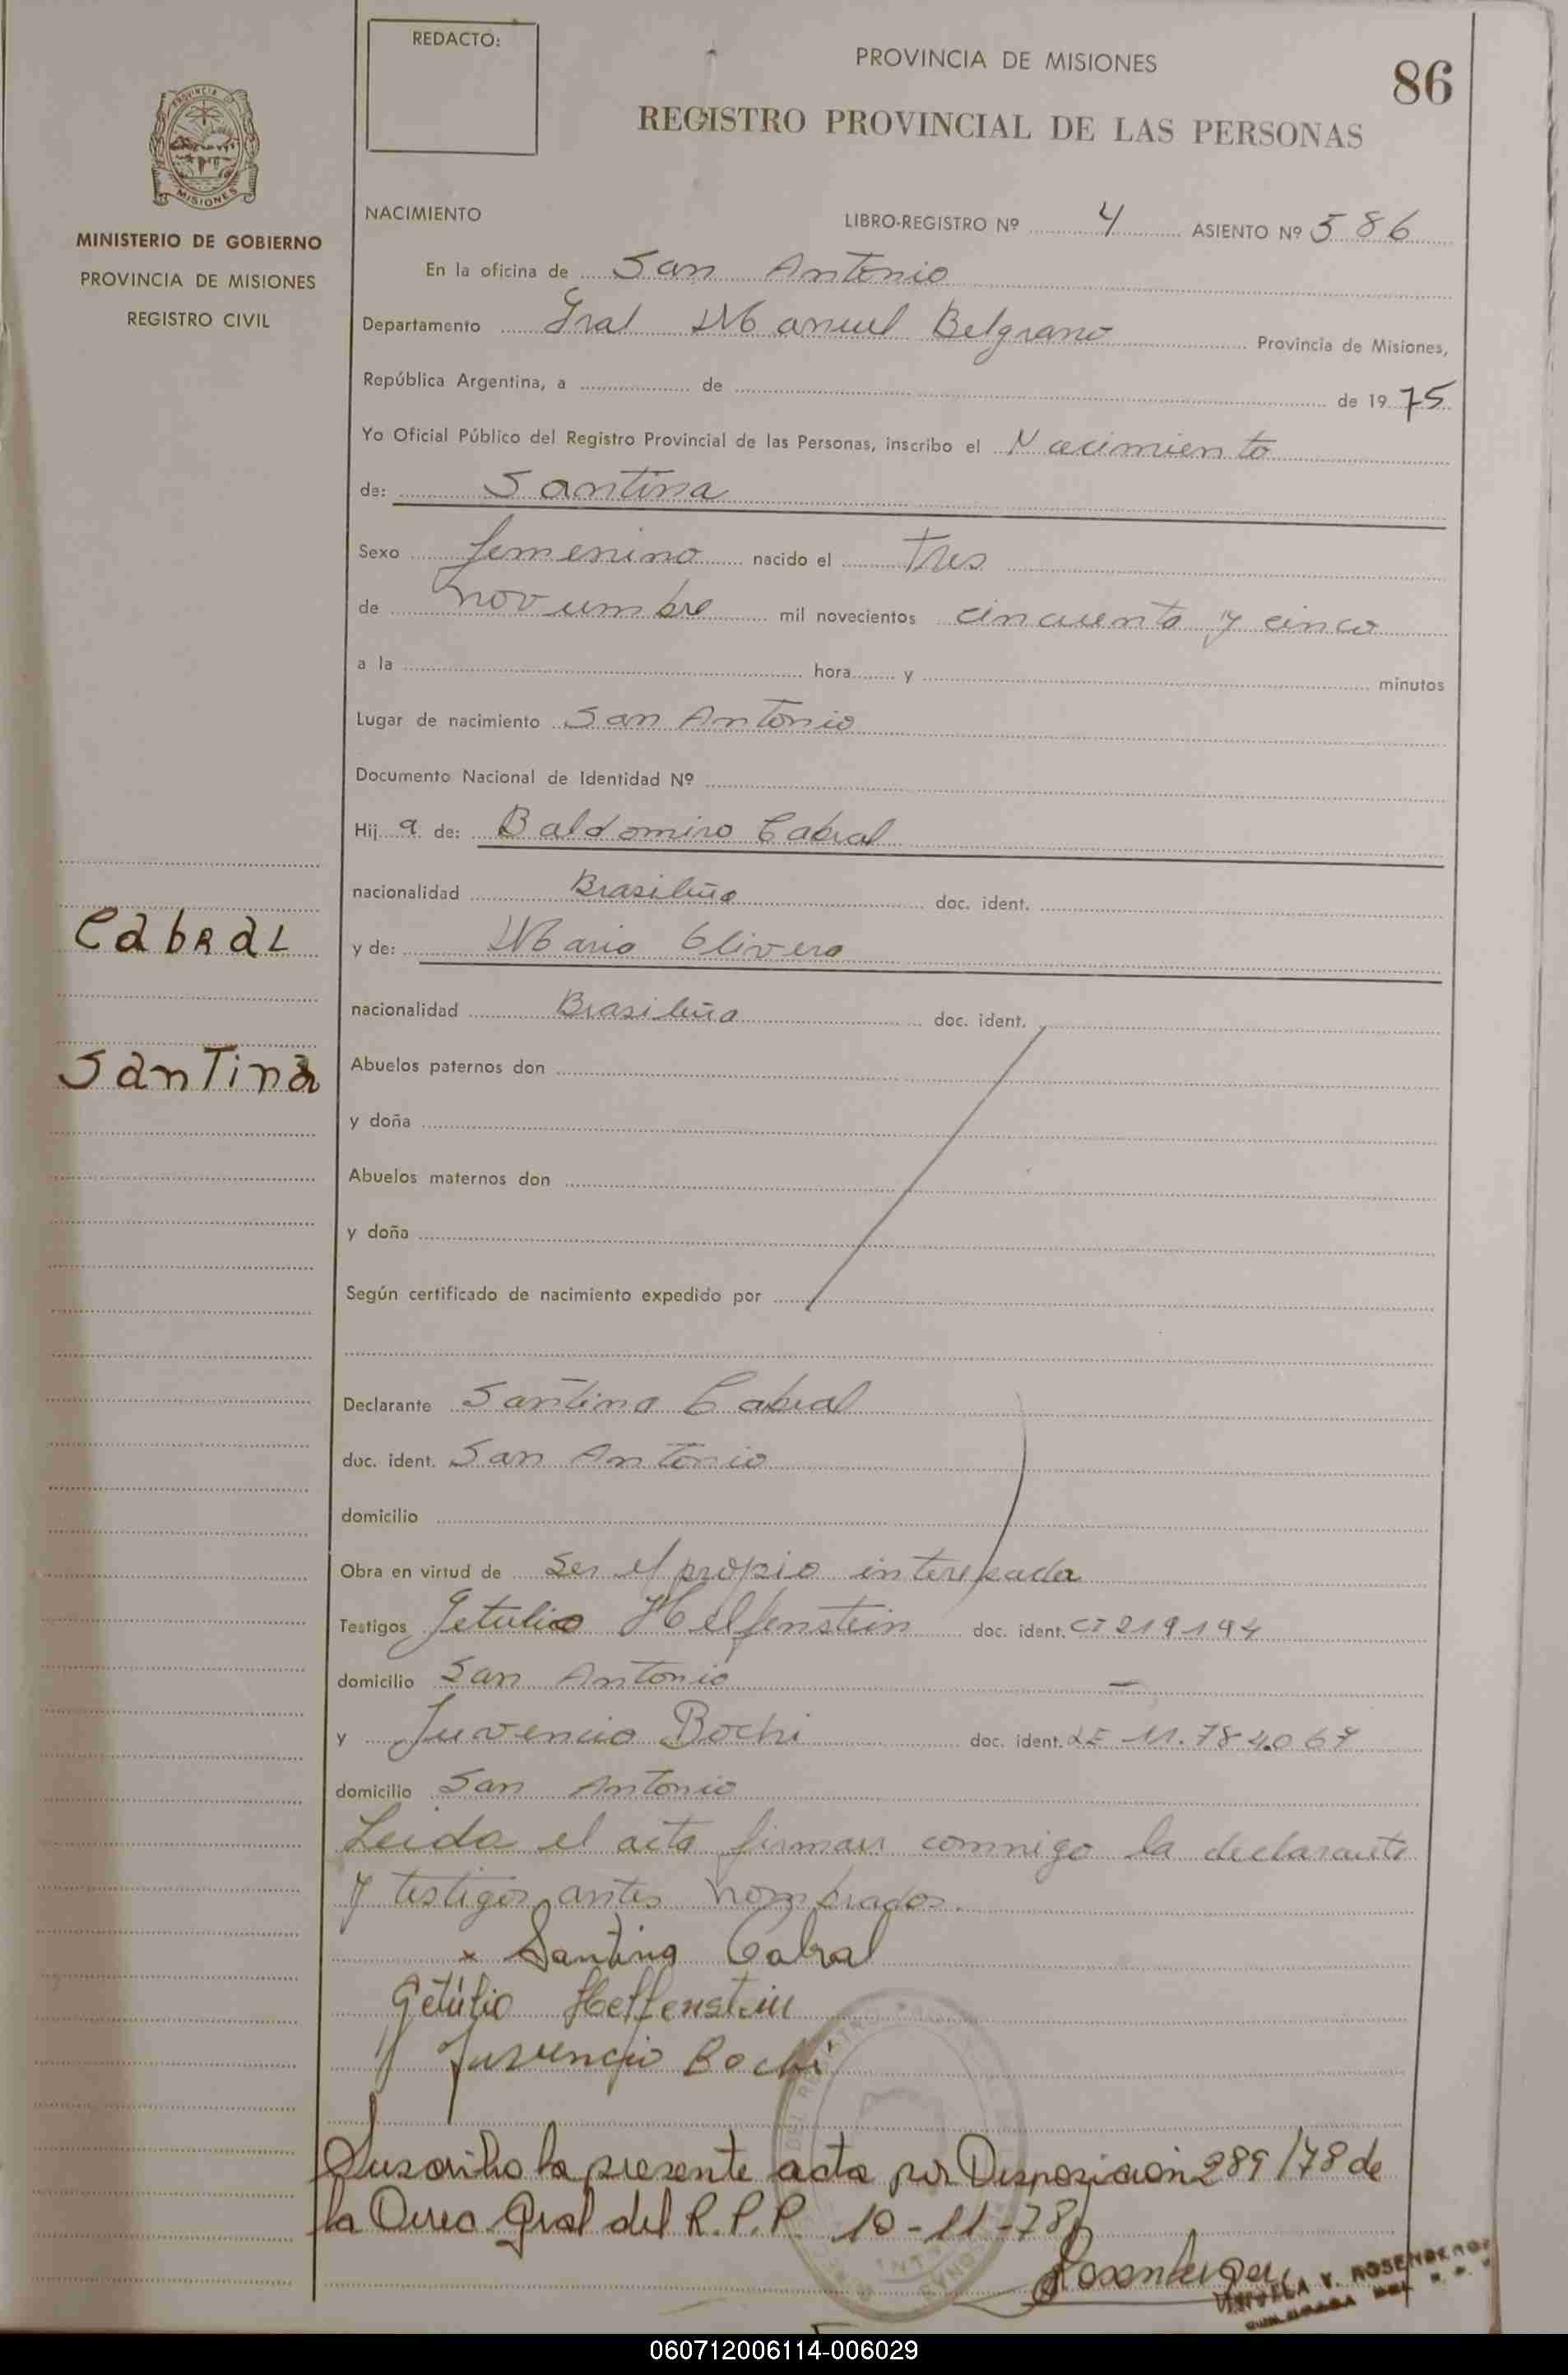 REDACTO:
PROVINCIA DE MISIONES
86
REGISTRO PROVINCIAL DE LAS PERSONAS
MISIONES
MINISTERIO DE GOBIERNO
PROVINCIA DE MISIONES
REGISTRO CIVIL
NACIMIENTO
LIBRO-REGISTRO Nº 4 ASIENTO Nº 586
En la oficina de San Antonio
Departamento Gral Manuel Belgrano Provincia de Misiones,
República Argentina, a de de 1975
Yo Oficial Público del Registro Provincial de las Personas, inscribo el Nacimiento
de: Santina
Sexo femenino nacido el Tres
de novembre mil novecientos cincuenta y cinco
a la hora y minutos
Lugar de nacimiento San Antonio
Documento Nacional de Identidad Nº
Hij a de: Baldomiro Cabral
nacionalidad Brasileña doc. ident.
Cabral
y de: Maria Olivera
nacionalidad Brasileña doc. ident.
Santina
Abuelos paternos don
y doña
Abuelos maternos don
y doña
Según certificado de nacimiento expedido por
Declarante Santina Cabral
doc. ident. San Antonio
domicilio
Obra en virtud de ser el propio interesada
Testigos Getulio Helfenstein doc. ident. CI 219194
domicilio San Antonio
y Juvencio Bochi doc. ident. LE 11.784.067
domicilio San Antonio
Leida el acta firman conmigo la declarante
y testigos antes nombrados.
x Santina Cabral
Getúlio Helfenstein
Juvencio Bochi
Suscribo la presente acta por Disposicion 289/78 de
la Direc Gral del R.P.P. 10-11-78
060712006114-006029